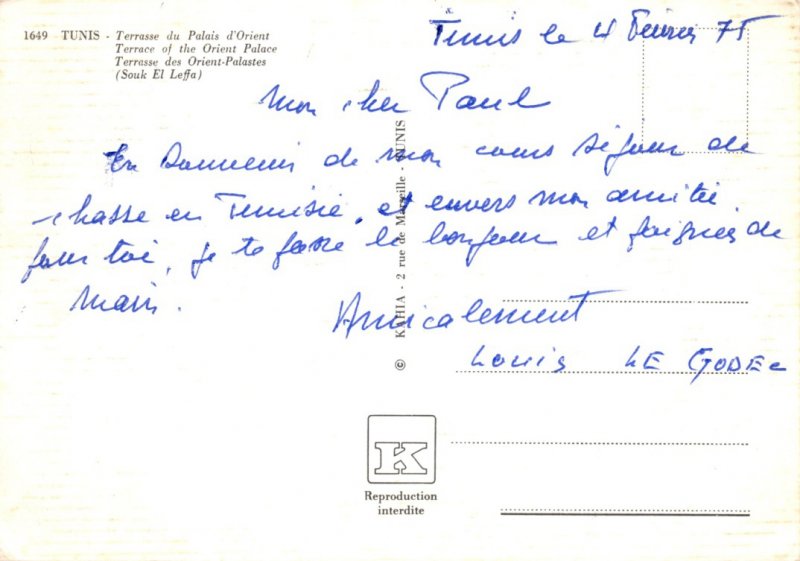 1649 - TUNIS - Terrasse du Palais d'Orient
Terrace of the Orient Palace
Terrasse des Orient-Palastes
(Souk El Leffa)
Tunis le 4 Février 75
Mon cher Paul
En Souvenir de mon cours séjour de
chasse en Tunisie, et envers mon amitié
pour toi, je te passe le bonjour et poignées de
main.
Amicalement
Louis LE GODEC
© KAHIA - 2 rue de Marseille - TUNIS
K
Reproduction
interdite